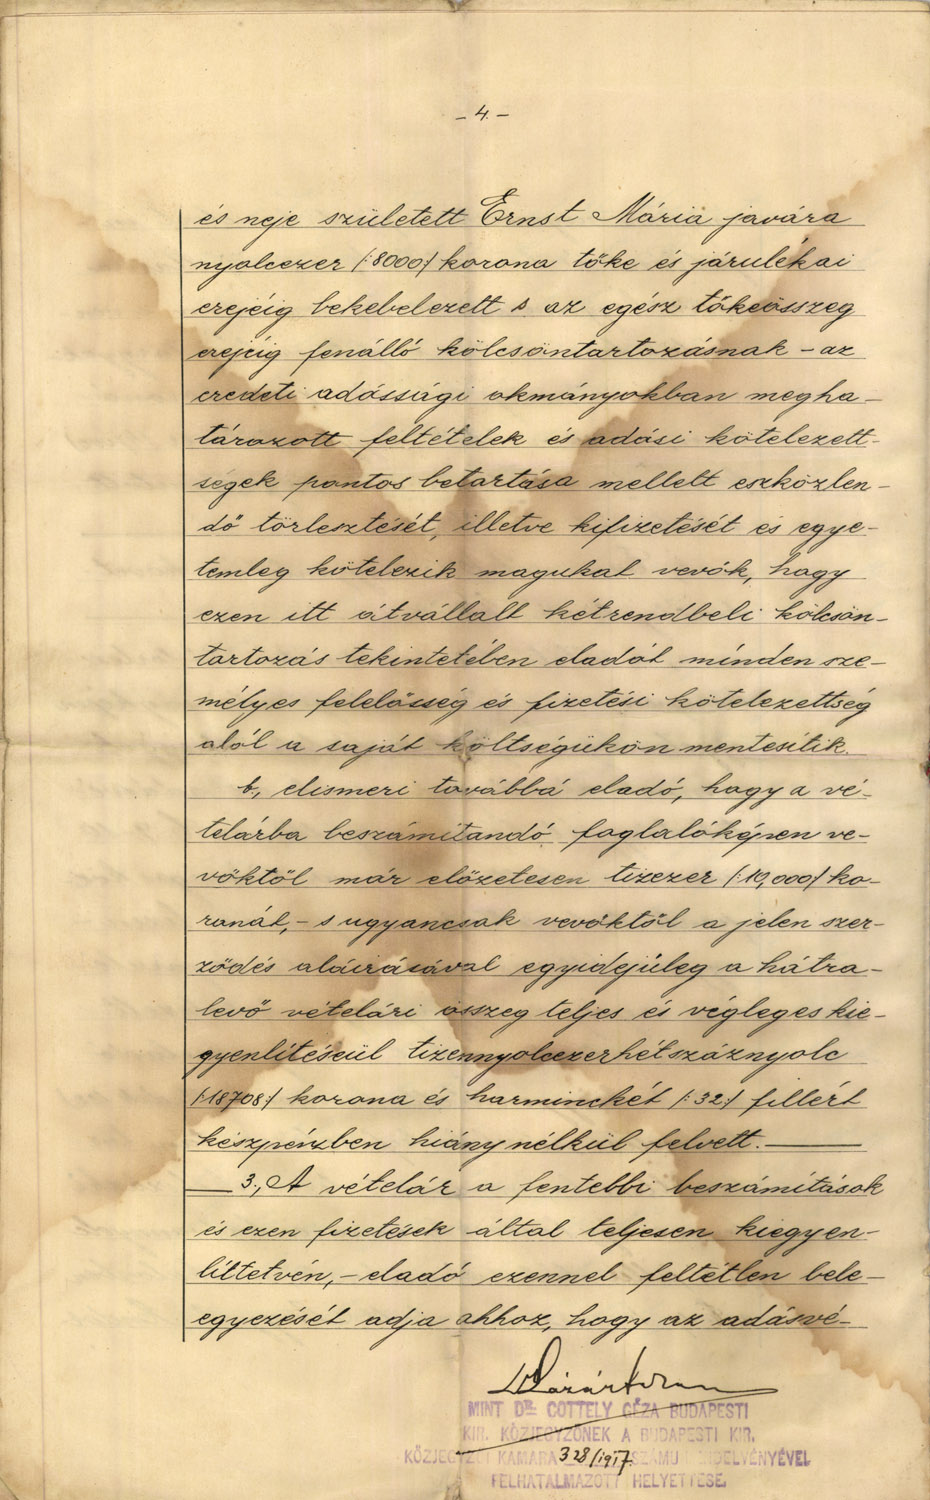 - 4. -
és neje született Ernst Mária javára
nyolcezer /:8000:/ korona tőke és járulékai
erejéig bekebelezett s az egész tőkeösszeg
erejéig fenálló kölcsöntartozásnak - az
eredeti adóssági okmányokban megha-
tározott feltételek és adási kötelezett-
ségek pontos betartása mellett eszközlen-
dő törlesztését, illetve kifizetését és egye-
temleg kötelezik magukat vevők, hogy
ezen itt átvállalt kétrendbeli kölcsön-
tartozás tekintetében eladót minden sze-
mélyes felelősség és fizetési kötelezettség
alól a saját költségükön mentesítik.
b., elismeri továbbá eladó, hogy a vé-
telárba beszámítandó foglalóképen ve-
vőktől már előzetesen tizezer /:10,000:/ ko-
ronát, - s ugyancsak vevőktől a jelen szer-
ződés aláirásával egyidejűleg a hátra-
levő vételári összeg teljes és végleges kie-
gyenlítéseül tizennyolcezerhétszáznyolc
/:18708:/ korona és harminckét /:32:/ fillért
készpénzben hiány nélkül felvett.
3., A vételár a fentebbi beszámítások
és ezen fizetések által teljesen kiegyen-
líttetvén, - eladó ezennel feltétlen bele-
egyezését adja ahhoz, hogy az adásvé-
MINT DR. COTTELY GÉZA BUDAPESTI
KIR. KÖZJEGYZŐNEK A BUDAPESTI KIR.
KÖZJEGYZŐI KAMARA 328/1917. SZÁMU RENDELVÉNYÉVEL
FELHATALMAZOTT HELYETTESE.